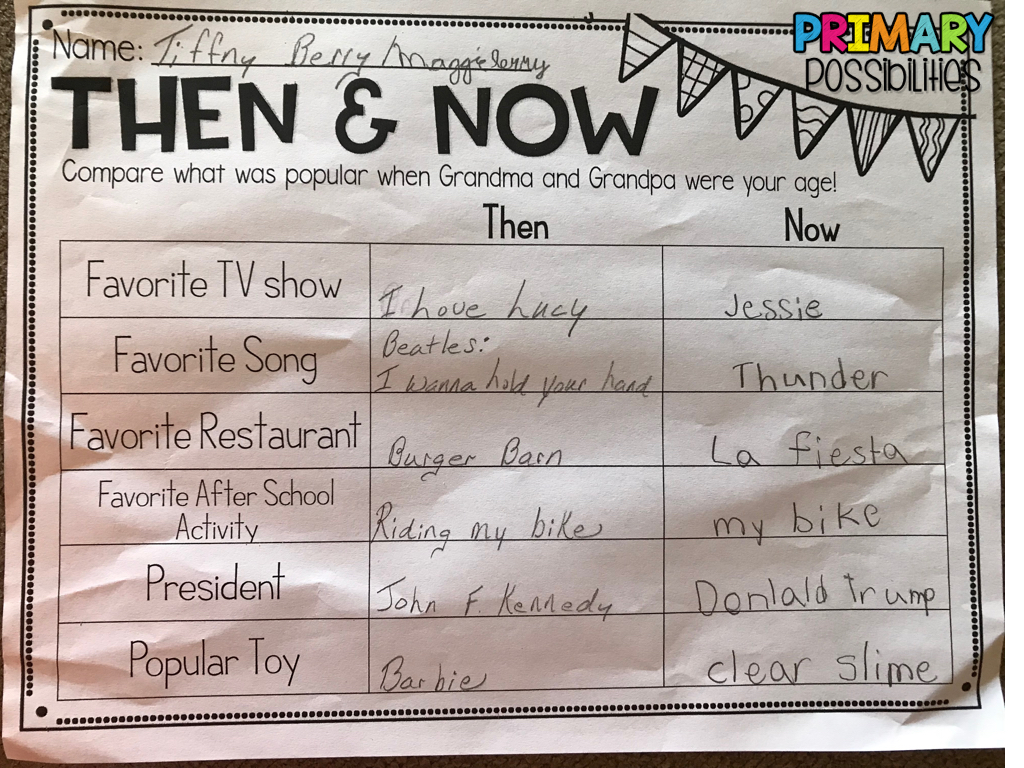 PRIMARY
POSSIBILITIES
Name: Tiffny Berry / Maggie
THEN & NOW
Compare what was popular when Grandma and Grandpa were your age!
Then Now
Favorite TV show I Love Lucy Jessie
Favorite Song Beatles: I wanna hold your hand Thunder
Favorite Restaurant Burger Barn La fiesta
Favorite After School Activity Riding my bike my bike
President John F. Kennedy Donlald trump
Popular Toy Barbie clear slime